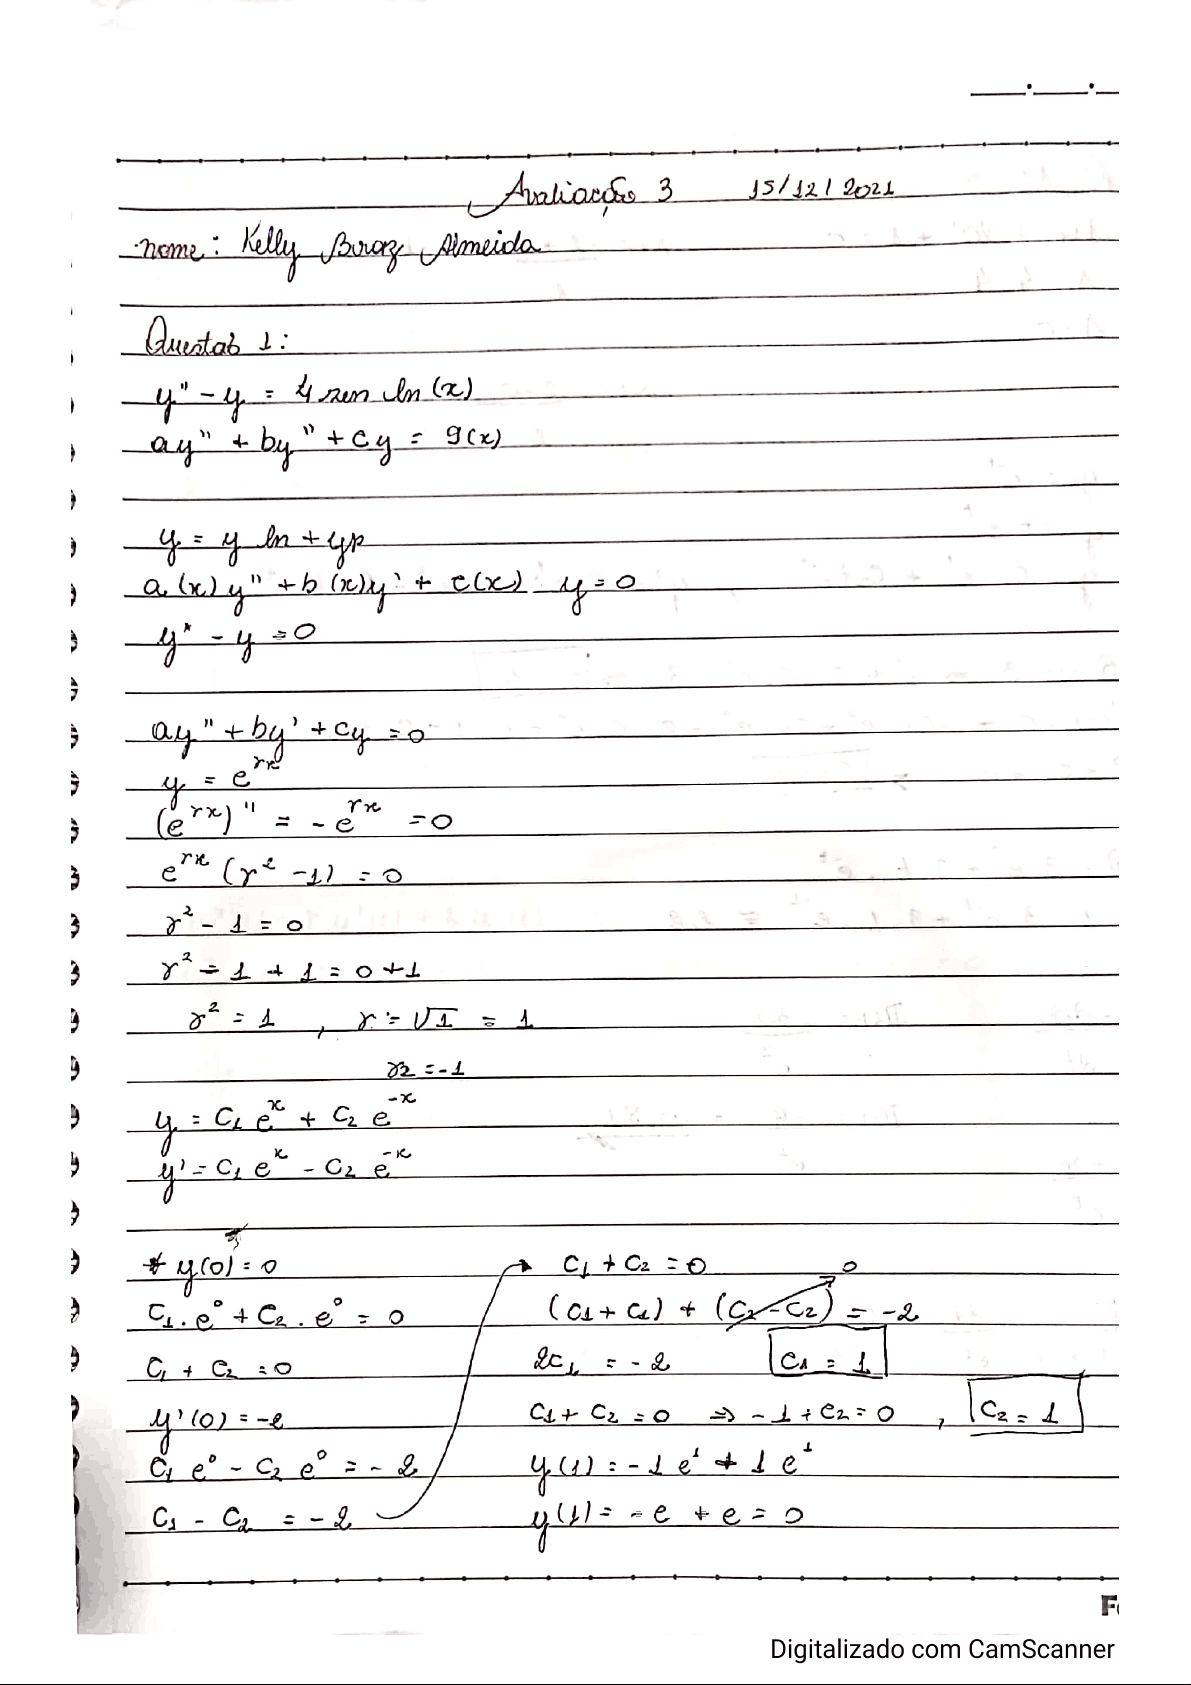 Avaliação 3 15/12/2021
nome: Kelly Braz Almeida
Questão 1:
y'' - y = 4 sen ln (x)
ay'' + by'' + cy = g(x)
y = y ln + yp
a (x) y'' + b (x)y' + c(x) y = 0
y'' - y = 0
ay'' + by' + cy = 0
y = e^{rx}
(e^{rx})'' = - e^{rx} = 0
e^{rx} (r² - 1) = 0
r² - 1 = 0
r² - 1 + 1 = 0 + 1
r² = 1 , r = √1 = 1
r2 = -1
y = C₁ e^{x} + C₂ e^{-x}
y' = C₁ e^{x} - C₂ e^{-x}
* y(0) = 0
C₁ . e⁰ + C₂ . e⁰ = 0
C₁ + C₂ = 0
y'(0) = -2
C₁ e⁰ - C₂ e⁰ = - 2
C₁ - C₂ = - 2
C₁ + C₂ = 0 0
(C₁ + C₁) + (C₂ - C₂) = -2
2C₁ = - 2 C₁ = 1
C₁ + C₂ = 0 => - 1 + C₂ = 0 , C₂ = 1
y (1) = - 1 e¹ + 1 e¹
y (1) = - e + e = 0
Digitalizado com CamScanner